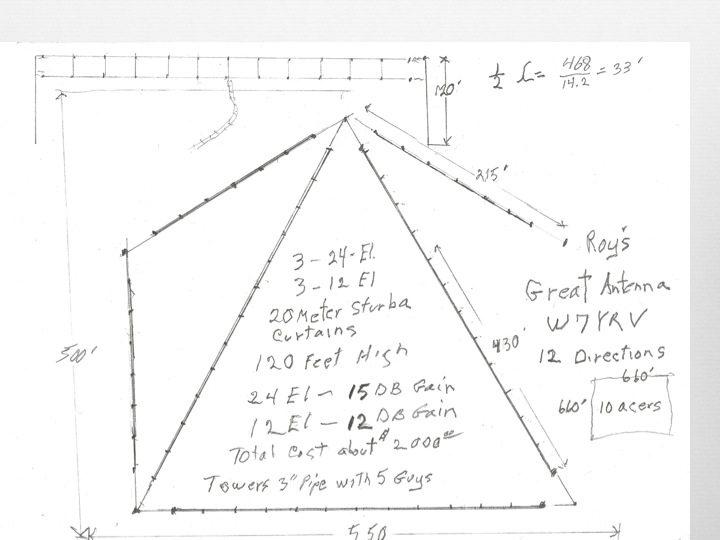 ½ L = 468/14.2 = 33'
120'
215'
Roy's
Great Antenna
W7YRV
12 Directions
660'
660'
10 acers
3-24-El.
3-12 El
20 Meter Sturba
Curtains
120 Feet High
24 El - 15 DB Gain
12 El - 12 DB Gain
Total Cost about $2000⁰⁰
Towers 3" Pipe with 5 Guys
430'
500'
550